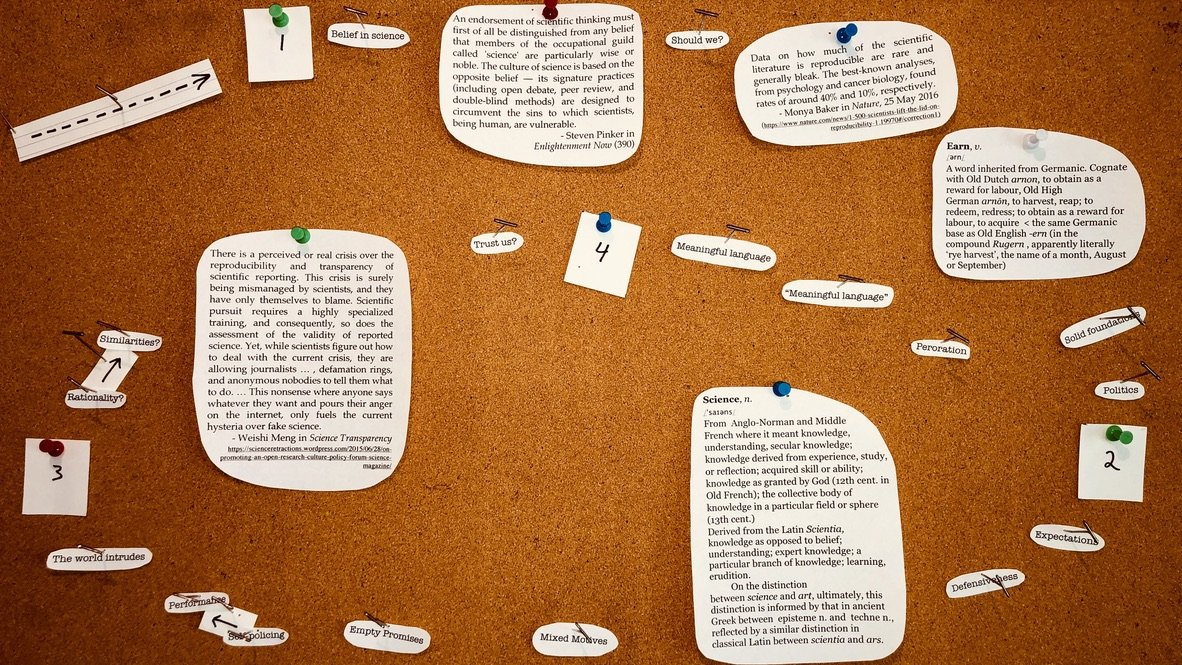 1
Belief in science
An endorsement of scientific thinking must
first of all be distinguished from any belief
that members of the occupational guild
called 'science' are particularly wise or
noble. The culture of science is based on the
opposite belief — its signature practices
(including open debate, peer review, and
double-blind methods) are designed to
circumvent the sins to which scientists,
being human, are vulnerable.
- Steven Pinker in
Enlightenment Now (390)
Should we?
Data on how much of the scientific
literature is reproducible are rare and
generally bleak. The best-known analyses,
from psychology and cancer biology, found
rates of around 40% and 10%, respectively.
- Monya Baker in Nature, 25 May 2016
(https://www.nature.com/news/1-500-scientists-lift-the-lid-on-
reproducibility-1.19970#/correction1)
Earn, v.
/ərn/
A word inherited from Germanic. Cognate
with Old Dutch arnon, to obtain as a
reward for labour, Old High
German arnōn, to harvest, reap; to
redeem, redress; to obtain as a reward for
labour, to acquire < the same Germanic
base as Old English -ern (in the
compound Rugern , apparently literally
'rye harvest', the name of a month, August
or September)
Trust us?
4
Meaningful language
"Meaningful language"
Peroration
Solid foundations
Politics
2
There is a perceived or real crisis over the
reproducibility and transparency of
scientific reporting. This crisis is surely
being mismanaged by scientists, and they
have only themselves to blame. Scientific
pursuit requires a highly specialized
training, and consequently, so does the
assessment of the validity of reported
science. Yet, while scientists figure out how
to deal with the current crisis, they are
allowing journalists ... , defamation rings,
and anonymous nobodies to tell them what
to do. ... This nonsense where anyone says
whatever they want and pours their anger
on the internet, only fuels the current
hysteria over fake science.
- Weishi Meng in Science Transparency
https://scienceretractions.wordpress.com/2015/06/28/on-
promoting-an-open-research-culture-policy-forum-science-
magazine/
Similarities?
Rationality?
3
Science, n.
/ˈsaɪəns/
From Anglo-Norman and Middle
French where it meant knowledge,
understanding, secular knowledge;
knowledge derived from experience, study,
or reflection; acquired skill or ability;
knowledge as granted by God (12th cent. in
Old French); the collective body of
knowledge in a particular field or sphere
(13th cent.)
Derived from the Latin Scientia,
knowledge as opposed to belief;
understanding; expert knowledge; a
particular branch of knowledge; learning,
erudition.
On the distinction
between science and art, ultimately, this
distinction is informed by that in ancient
Greek between episteme n. and techne n.,
reflected by a similar distinction in
classical Latin between scientia and ars.
Expectations
Defensiveness
The world intrudes
Self-policing
Empty Promises
Mixed Motives